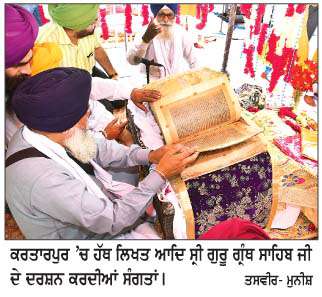 ਕਰਤਾਰਪੁਰ 'ਚ ਹੱਥ ਲਿਖਤ ਆਦਿ ਸ੍ਰੀ ਗੁਰੂ ਗ੍ਰੰਥ ਸਾਹਿਬ ਜੀ
ਦੇ ਦਰਸ਼ਨ ਕਰਦੀਆਂ ਸੰਗਤਾਂ। ਤਸਵੀਰ- ਮੁਨੀਸ਼